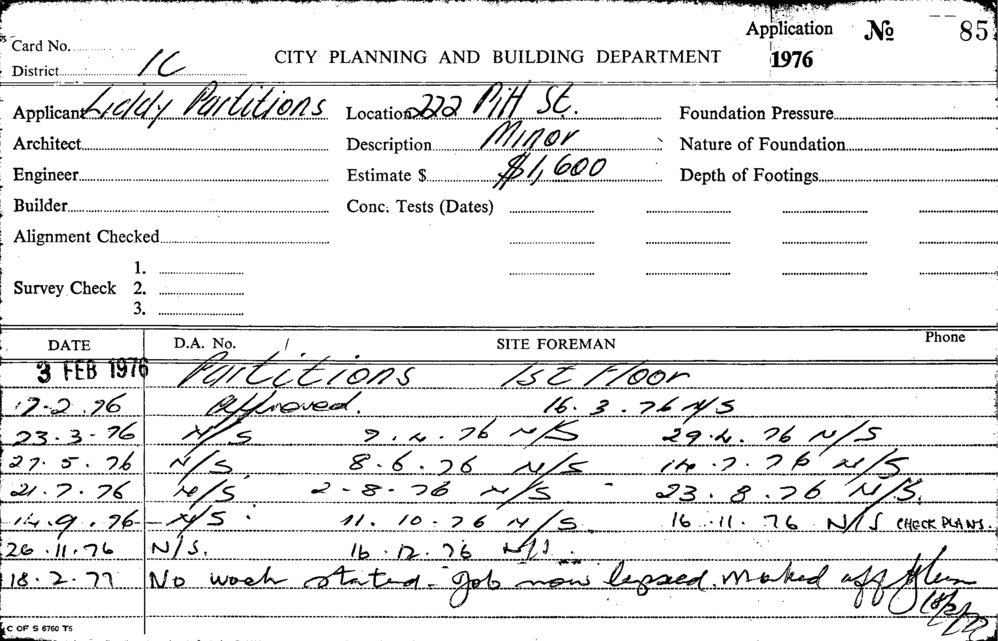 Application № 85
Card No.
District 1C CITY PLANNING AND BUILDING DEPARTMENT 1976
Applicant Liddy Partitions Location 222 Pitt St. Foundation Pressure
Architect Description Minor Nature of Foundation
Engineer Estimate $ $1,600 Depth of Footings
Builder Conc. Tests (Dates)
Alignment Checked
1.
Survey Check 2.
3.
DATE D.A. No. / SITE FOREMAN Phone
3 FEB 1976 Partitions 1st Floor
17.2.76 Approved. 16.3.76 N/S
23.3.76 N/S 7.4.76 N/S 29.4.76 N/S
27.5.76 N/S 8.6.76 N/S 14.7.76 N/S
21.7.76 N/S 2-8.76 N/S 23.8.76 N/S.
14.9.76 - N/S. 11.10.76 N/S. 16.11.76 N/S CHECK PLANS.
26.11.76 N/S. 16.12.76 N/S.
18.2.77 No work started - Job now lapsed. Marked off
18/2/77
C OF S 6760 T6